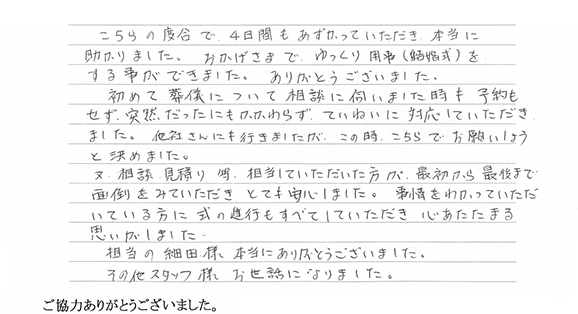 こちらの度合で、4日間もあずかっていただき、本当に
助かりました。 おかげさまで、ゆっくり用事(結婚式)を
する事ができました。 ありがとうございました。
初めて葬儀について相談に伺いました時も予約も
せず、突然だったにもかかわらず、ていねいに対応していただき
ました。 他社さんにも行きましたが、この時、こちらでお願いしよう
と決めました。
又、相談、見積り 等、担当していただいた方が、最初から最後まで
面倒をみていただきとても安心しました。 事情をわかっていただ
いている方に式の進行もすべてしていただき 心あたたまる
思いがしました。
担当の細田様 本当にありがとうございました。
その他スタッフ様 お世話になりました。
ご協力ありがとうございました。